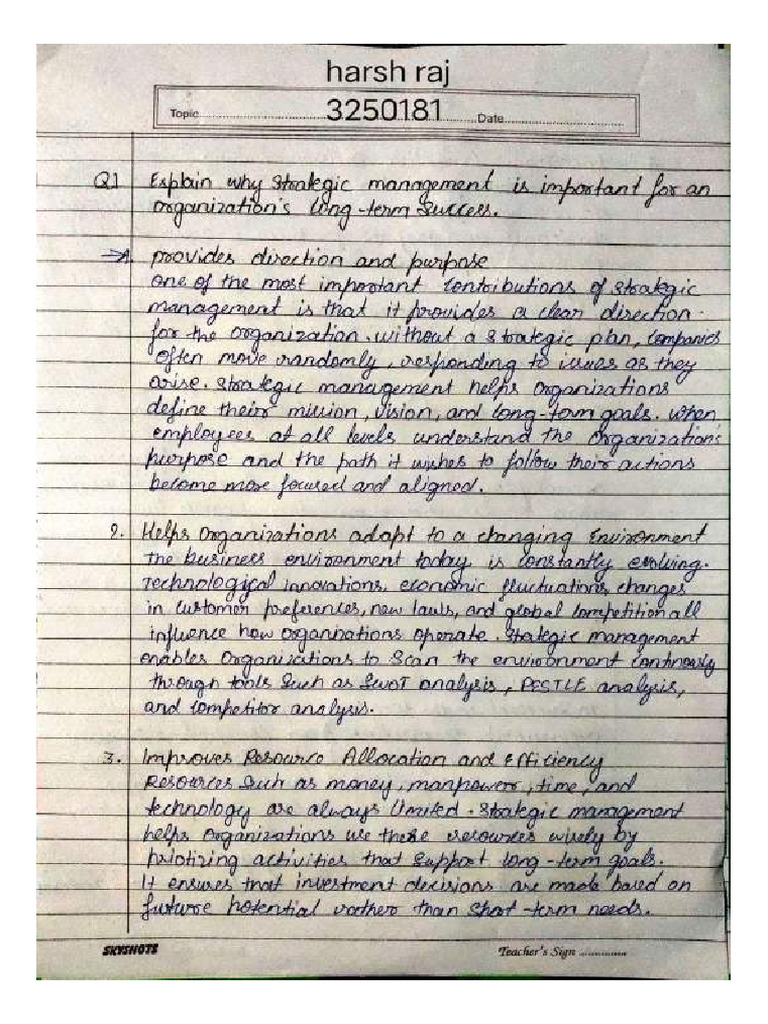 harsh raj
Topic 3250181 Date
Q1 Explain why strategic management is important for an
organization's long-term success.
→ A. provides direction and purpose
one of the most important contributions of strategic
management is that it provides a clear direction.
for the organization. without a strategic plan, companies
often move randomly, responding to issues as they
arise. strategic management helps organizations
define their mission, vision, and long-term goals. when
employees at all levels understand the organization's
purpose and the path it wishes to follow their actions
become more focused and aligned.
2. Helps organizations adapt to a changing Environment
The business environment today is constantly evolving.
Technological innovations, economic fluctuations, changes
in customer preferences, new laws, and global competition all
influence how organnations operate. strategic management
enables organizations to scan the environment continously
through tools such as SWOT analysis, PESTLE analysis,
and competitor analysis.
3. Improves Resource Allocation and Efficiency
Resources such as money, manpower, time, and
technology are always limited. strategic management
helps organizations use these resources wisely by
priotizing activities that support long-term goals.
It ensures that investment decisions are made based on
future potential rather than short-term needs.
SKYSNOTS Teacher's Sign